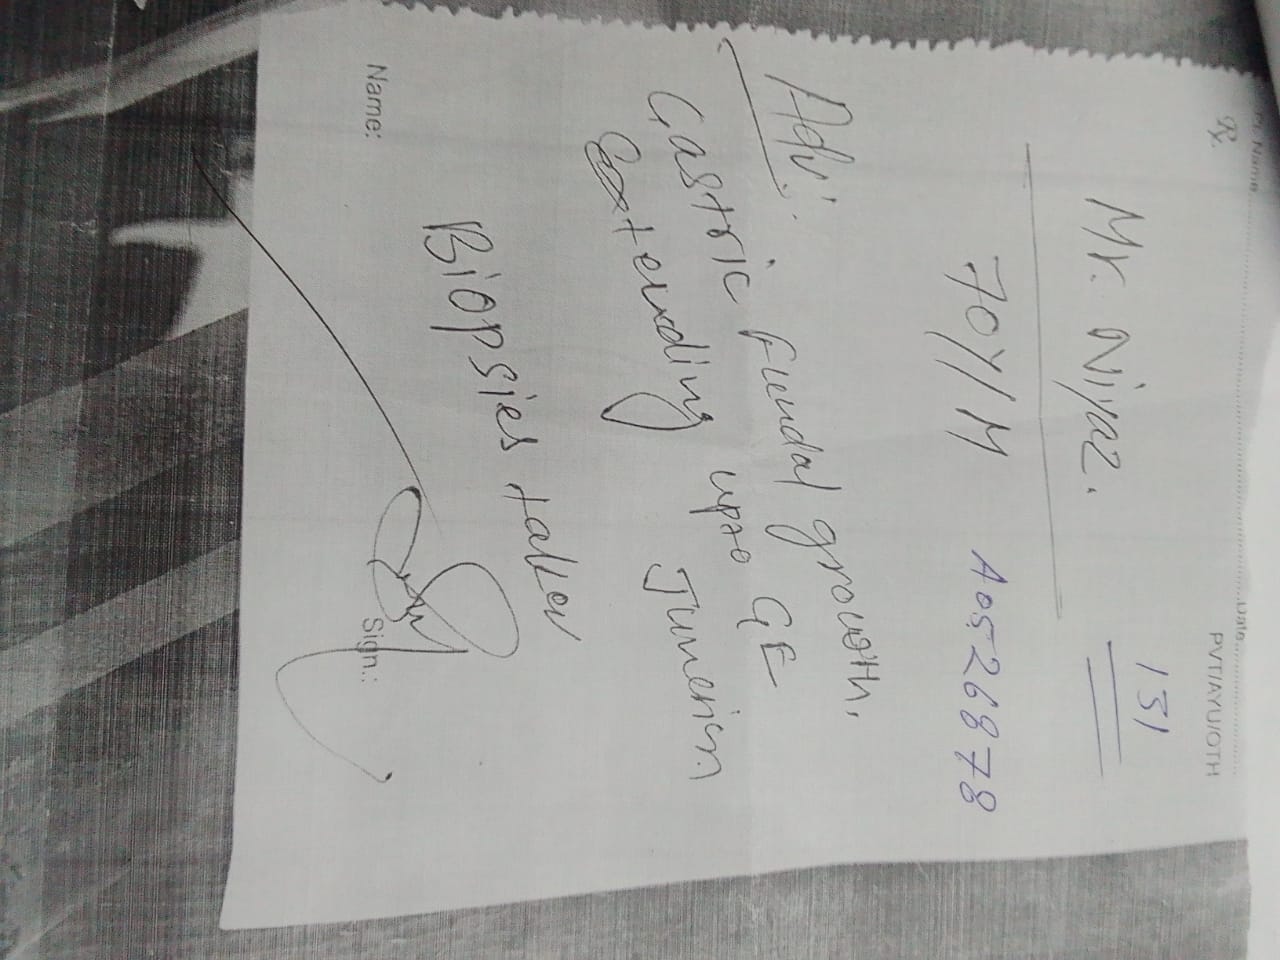 Pt. Name Date
Rx PVT/AYU/OTH
131
Mr. Niyaz.
70Y/M A0526878
Adv:
Gastric fundal growth.
Extending upto GE
Junction
Biopsies taken
Name: Sign.: